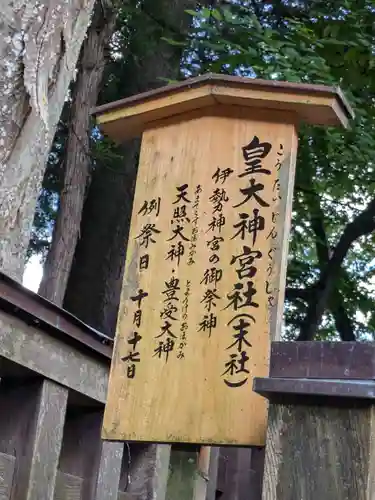 皇大神宮社(末社)
こうたいじんぐうしゃ
伊勢神宮の御祭神
天照大神・豊受大神
あまてらすおおみかみ
とようけのおおみかみ
例祭日 十月十七日